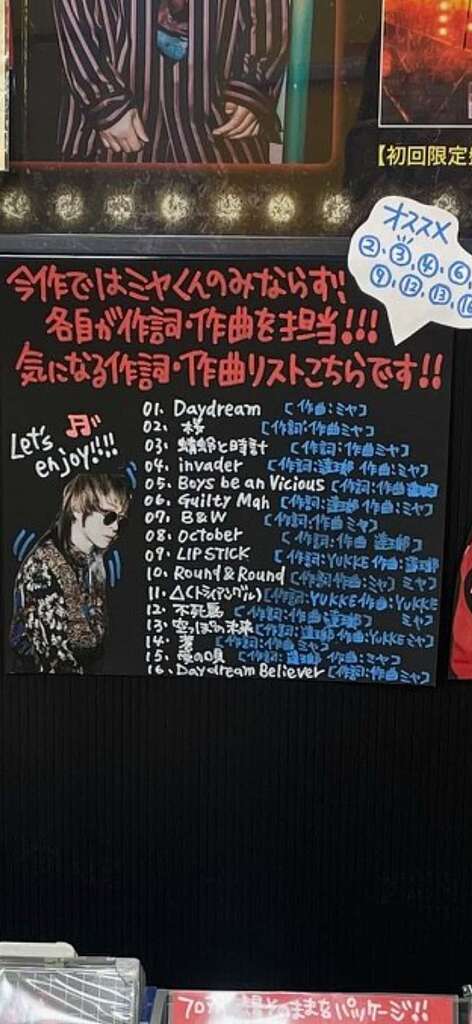 【初回限定
オススメ
②、③、④、⑥
⑨、⑫、⑬、⑯
今作ではミヤくんのみならず、
各自が作詞・作曲を担当!!!
気になる作詞・作曲リストこちらです!!
Let's enjoy!!!!
01. Daydream [作曲:ミヤ]
02. 桜 [作詞:作曲ミヤ]
03. 蜻蛉と時計 [作詞:作曲ミヤ]
04. invader [作詞:逹瑯 作曲:ミヤ]
05. Boys be an Vicious [作詞:作曲 逹瑯]
06. Guilty Man [作詞:逹瑯 作曲:ミヤ]
07. B&W [作詞:作曲 ミヤ]
08. October [作詞:作曲 逹瑯]
09. LIP STICK [作詞:YUKKE 作曲:逹瑯]
10. Round & Round [作詞:作曲 ミヤ]
11. △(トライアングル) [作詞:YUKKE 作曲:YUKKE ミヤ]
12. 不死鳥 [作詞:作曲 逹瑯]
13. 空っぽの未来 [作詞:逹瑯 作曲:YUKKE ミヤ]
14. [作詞:作曲 ミヤ]
15. の唄 [作詞:逹瑯 作曲:ミヤ]
16. Daydream Believer [作詞:作曲 ミヤ]
そのままをパッケージ!!